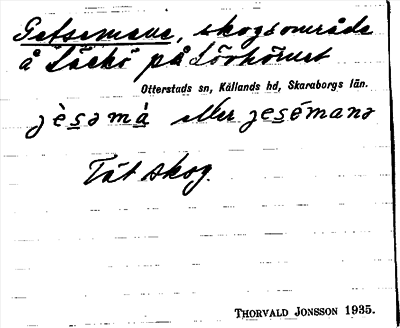 Getsemane, skogsområde
å Läckö på Lövhörnet
Otterstads sn, Kållands hd, Skaraborgs län.
jèsəmà eller jesémanə
Tät skog.
THORVALD JONSSON 1935.